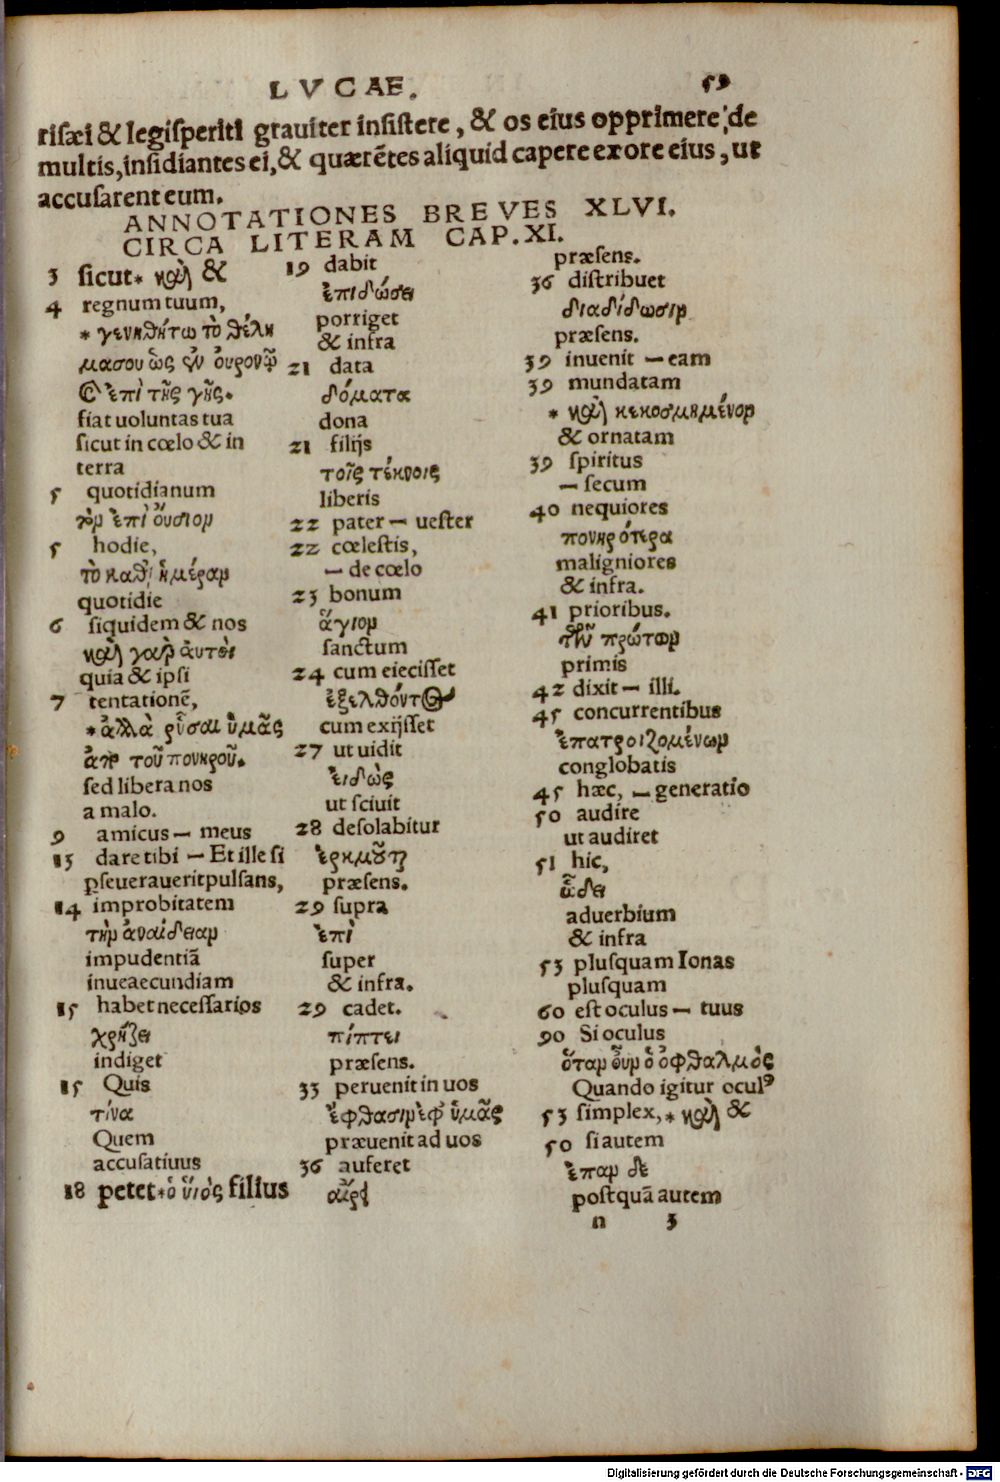 LVCAE. 59
risæi & legisperiti grauiter insistere, & os eius opprimere, de
multis, insidiantes ei, & quærẽtes aliquid capere ex ore eius, ut
accusarent eum.
ANNOTATIONES BREVES XLVI.
CIRCA LITERAM CAP. XI.
3 sicut * καὶ &
4 regnum tuum,
* γενηθήτω τὸ θέλη
μασου ὡς ἐν ουρονῶ
καὶ ἐπὶ τῆς γῆς.
fiat uoluntas tua
sicut in cœlo & in
terra
5 quotidianum
τὸν ἐπὶ ούσιον
5 hodie,
τὸ καθ' ἡμέραν
quotidie
6 siquidem & nos
καὶ γαρ ἀυτοὶ
quia & ipsi
7 tentationẽ,
* ἀλλὰ ρῦσαι ὑμᾶς
ἀπὸ τοῦ πονηροῦ.
sed libera nos
a malo.
9 amicus — meus
13 dare tibi — Et ille si
pseuerauerit pulsans,
14 improbitatem
τὴν ἀναίδειαν
impudentiã
inueaecundiam
15 habet necessarios
χρήζει
indiget
15 Quis
τίνα
Quem
accusatiuus
18 petet * ὁ ὕιὸς filius
19 dabit
ἐπιδώσει
porriget
& infra
21 data
δόματα
dona
21 filijs
τοῖς τέκνοις
liberis
22 pater — uester
22 cœlestis,
— de cœlo
23 bonum
ἅγιον
sanctum
24 cum eiecisset
ἐξελθόντος
cum exijsset
27 ut uidit
ἐιδὼς
ut sciuit
28 desolabitur
ἐρημοῦται
præsens.
29 supra
ἐπὶ
super
& infra.
29 cadet.
πίπτει
præsens.
33 peruenit in uos
ἐφθασιν ἐφ ὑμᾶς
præuenit ad uos
36 auferet
αἴρει
præsens.
36 distribuet
διαδίδωσιν
præsens.
39 inuenit — eam
39 mundatam
* καὶ κεκοσμημένον
& ornatam
39 spiritus
— secum
40 nequiores
πονηρότερα
maligniores
& infra.
41 prioribus.
τῶν πρώτων
primis
42 dixit — illi.
45 concurrentibus
ἐπατροιζομένων
conglobatis
45 hæc, — generatio
50 audire
ut audiret
51 hic,
ὧδε
aduerbium
& infra
53 plusquam Ionas
plusquam
60 est oculus — tuus
90 Si oculus
ὅταν οὖν ὁ ὀφθαλμὸς
Quando igitur oculꝰ
53 simplex, * καὶ &
50 si autem
ἐπαν δε
postquã autem
n 3
Digitalisierung gefördert durch die Deutsche Forschungsgemeinschaft - DFG